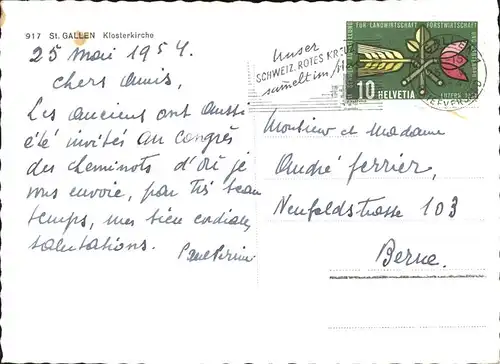 917 St. GALLEN Klosterkirche
25 Mai 1954.
Chers Amis,
Les Anciens ont aussi
été invités au Congrès
des cheminots d'où je
vous envoie, par très beau
temps, mes bien cordiales
salutations.
Unser
SCHWEIZ. ROTES KREUZ
sammelt im
FÜR LANDWIRTSCHAFT FORSTWIRTSCHAFT
10 HELVETIA
LUZERN 1954
BRIEFVERSAND
Monsieur et Madame
André Perrier,
Neufeldstrasse 103
Berne.